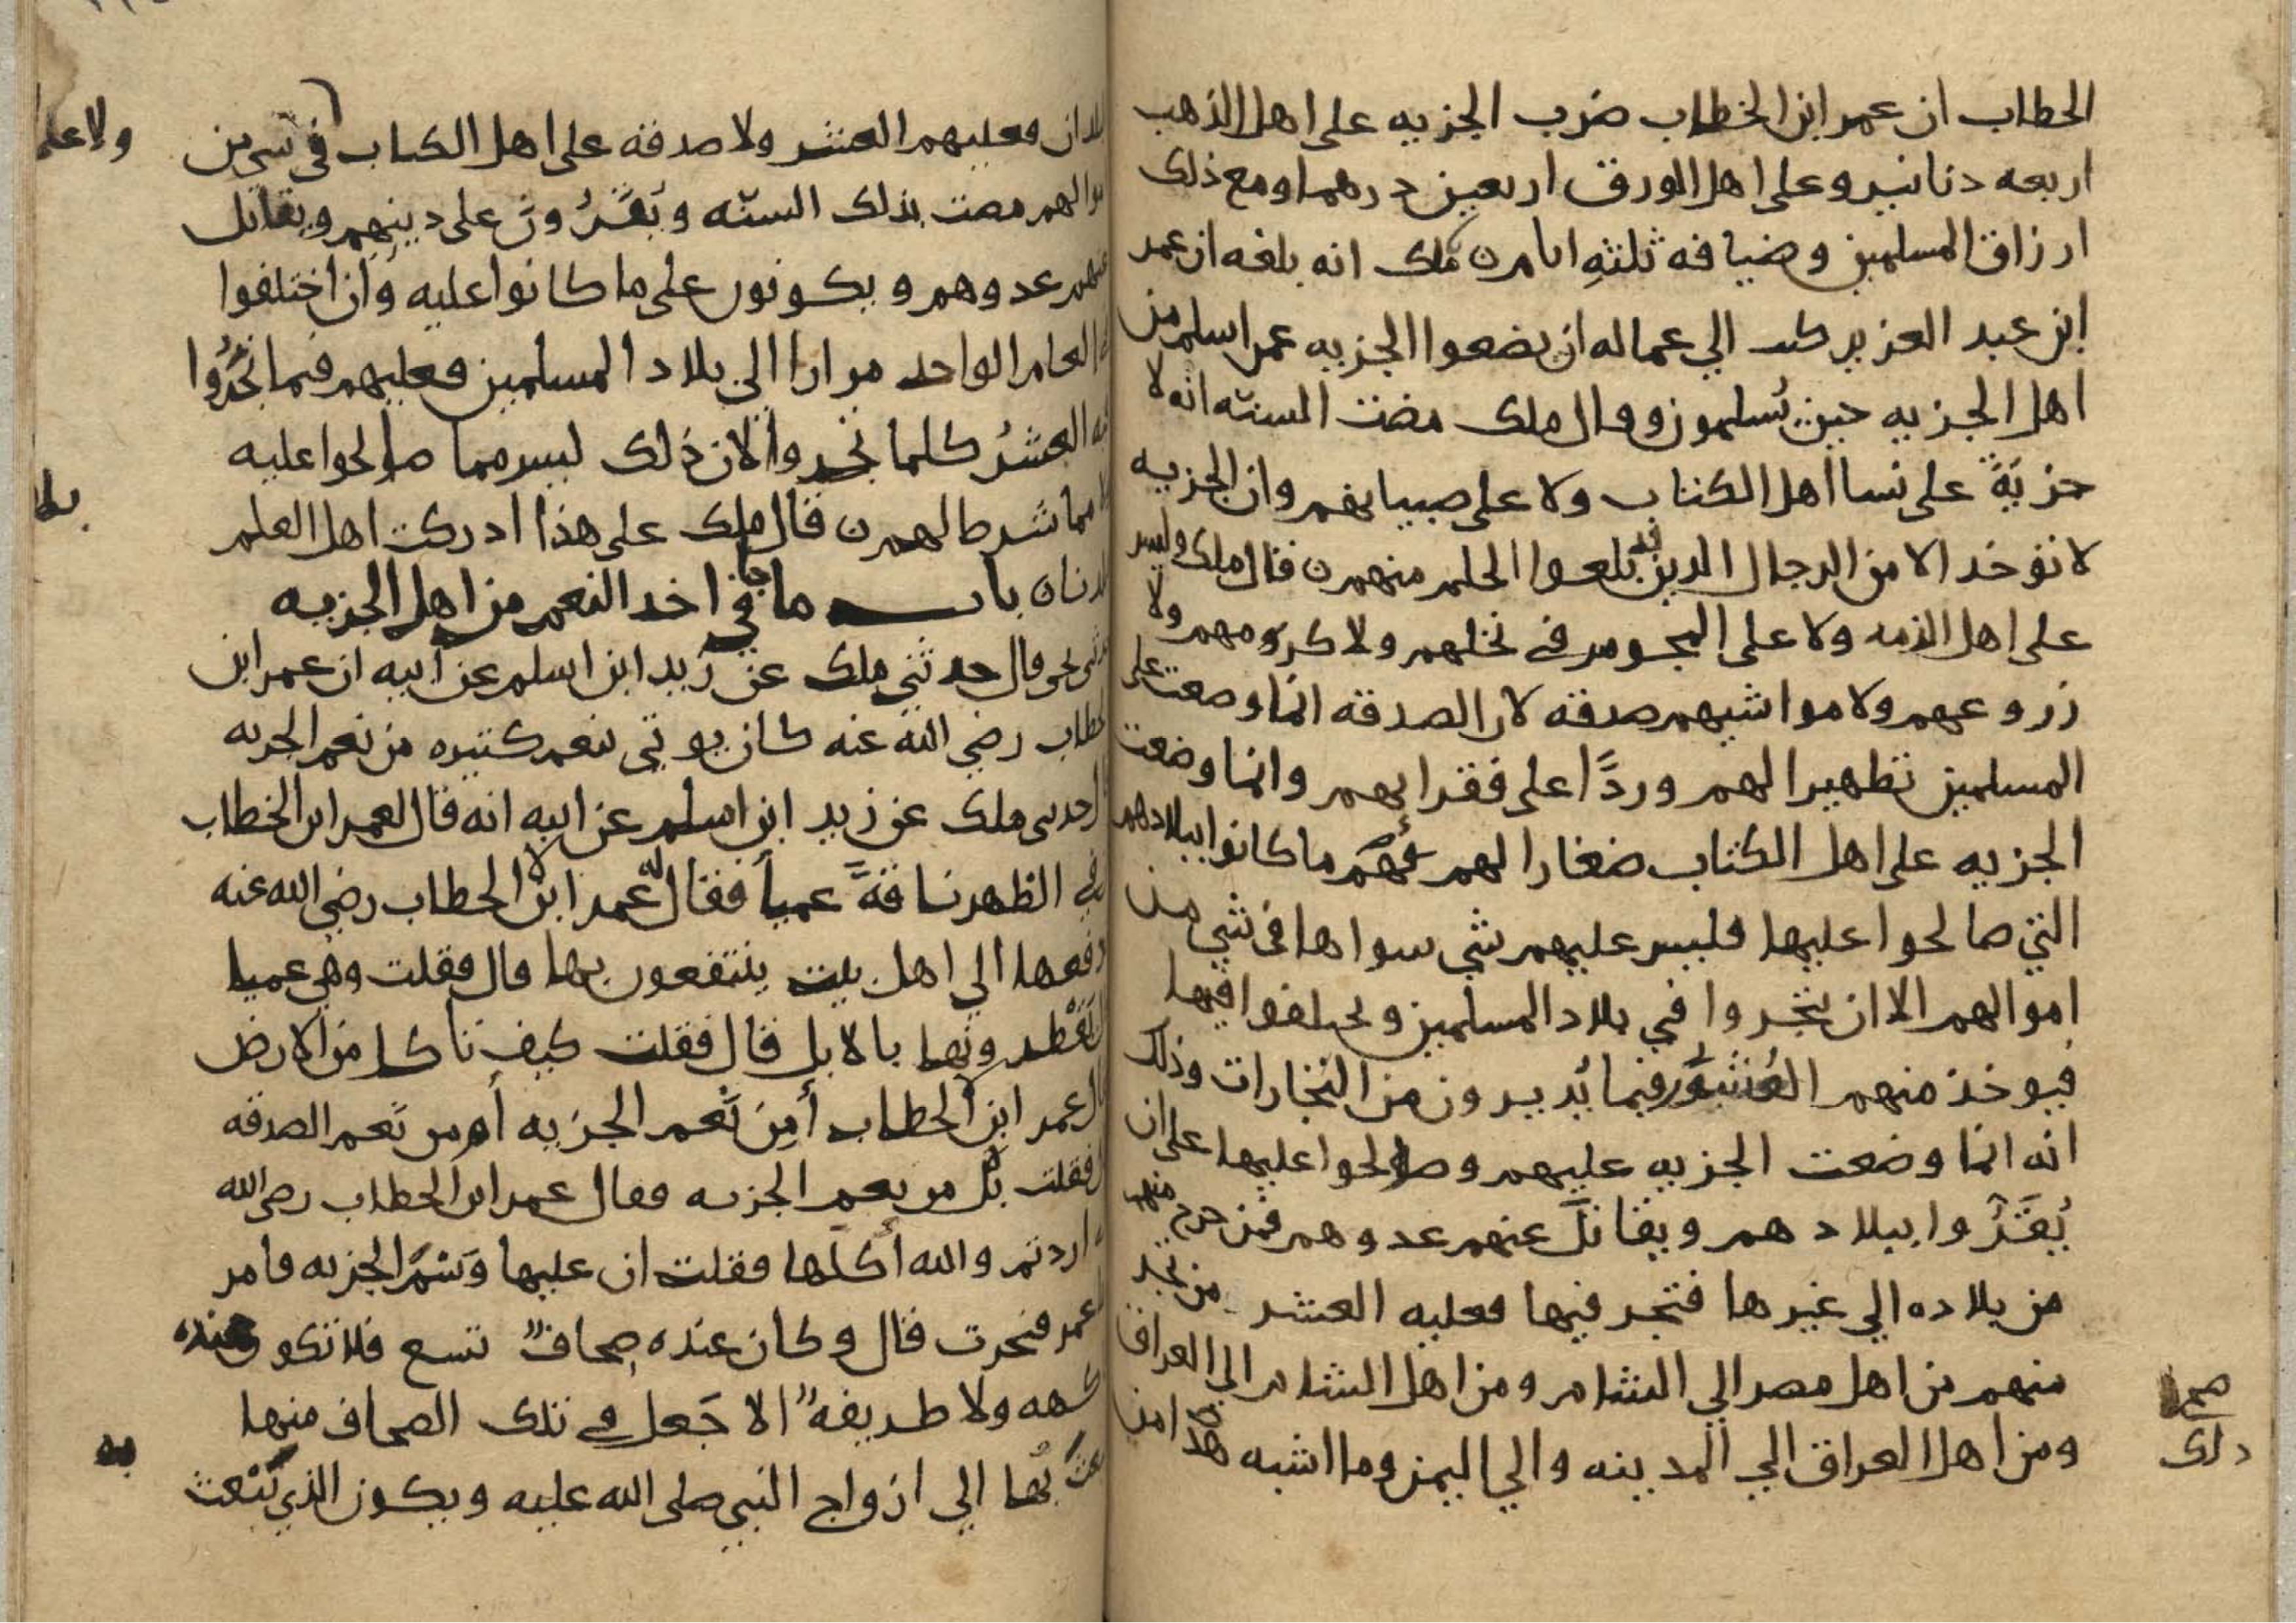 الخطاب ان عمر ابن الخطاب ضرب الجزيه على اهل الذهب
اربعه دنانير وعلى اهل الورق اربعين درهما ومع ذلك
ارزاق المسلمين وضيافه ثلثه ايام ن ملك انه بلغه ان عمر
ابن عبد العزيز كتب الي عماله ان يضعوا الجزيه عمن اسلم من
اهل الجزيه حين يُسلمون وقال ملك مضت السنه انه لا
جزيَةَ على نسا اهل الكتاب ولا على صبيانهم وان الجزيه
لا تؤخذ الا من الرجال الذين قد بلغوا الحلم منهم ن قال ملك وليس
على اهل الذمه ولا على المجوس في نخلهم ولا كرومهم ولا
زروعهم ولا مواشيهم صدقه لان الصدقه انما وضعت على
المسلمين تطهيرا لهم وردًّا على فقرايهم وانما وضعت
الجزيه على اهل الكتاب صغارا لهم فَهُم ما كانوا ببلادهم
التي صالحوا عليها فليس عليهم شي سواها في شي من
اموالهم الا ان يتجروا في بلاد المسلمين ويختلفوا فيها
فيوخذ منهم العُشُور فيما يُديرون من التجارات وذلك
انه انما وضعت الجزيه عليهم وصولحوا عليها على ان
يُقَرُّوا ببلادهم ويقاتَلَ عنهم عدوهم فمن خرج منهم
من بلاده الي غيرها فتجر فيها فعليه العشر من تجر
منهم من اهل مصر الي الشام ومن اهل الشام الي العراق
ومن اهل العراق الي المدينه والي اليمن وما اشبه هذا من
صح
ذلك
البلدان فعليهم العشر ولا صدقه على اهل الكتاب في شي من
ولا على
اموالهم مضت بذلك السنّه ويُقَرُّونَ على دينهم ويقاتل
عنهم عدوهم ويكونون على ما كانوا عليه وان اختلفوا
العام الواحد مرارا الي بلاد المسلمين فعليهم فيما تَجَرُوا
فيه العشرُ كلما تجروا لان ذلك ليس مما صولحوا عليه
ولا مما شرط لهم ن قال ملك على هذا ادركت اهل العلم
ببلدنا ن باب ما جا في اخذ النعم من اهل الجزيه
حدثني يحيى قال حدثني ملك عن زيد ابن اسلم عن ابيه ان عمر ابن
الخطاب رضي الله عنه كان يوتي بنعم كثيره من نعم الجزيه
حدثني ملك عن زيد ابن اسلم عن ابيه انه قال لعمر ابن الخطاب
ان في الظهر ناقَةً عميا فقال له عمر ابن الخطاب رضي الله عنه
ادفعها الي اهل بيت ينتفعون بها قال فقلت وهي عميا
قال يَقْطرونها بالابل قال فقلت كيف تاكل من الارض
قال عمر ابن الخطاب أمِن نَعم الجزيه أم من نَعم الصدقه
فقلت بل من نعم الجزيه فقال عمر ابن الخطاب رضي الله
اردتم والله أكلَها فقلت ان عليها وَسْمَ الجزيه فامر
عمر فنحرت قال وكان عنده صحافٌ تسع فلا تكون
فاكهه ولا طريفهٌ الا جَعل في تلك الصحاف منها
فبعثَ بُها الي ازواج النبي صلى الله عليه ويكون الذي يَبْعث
به